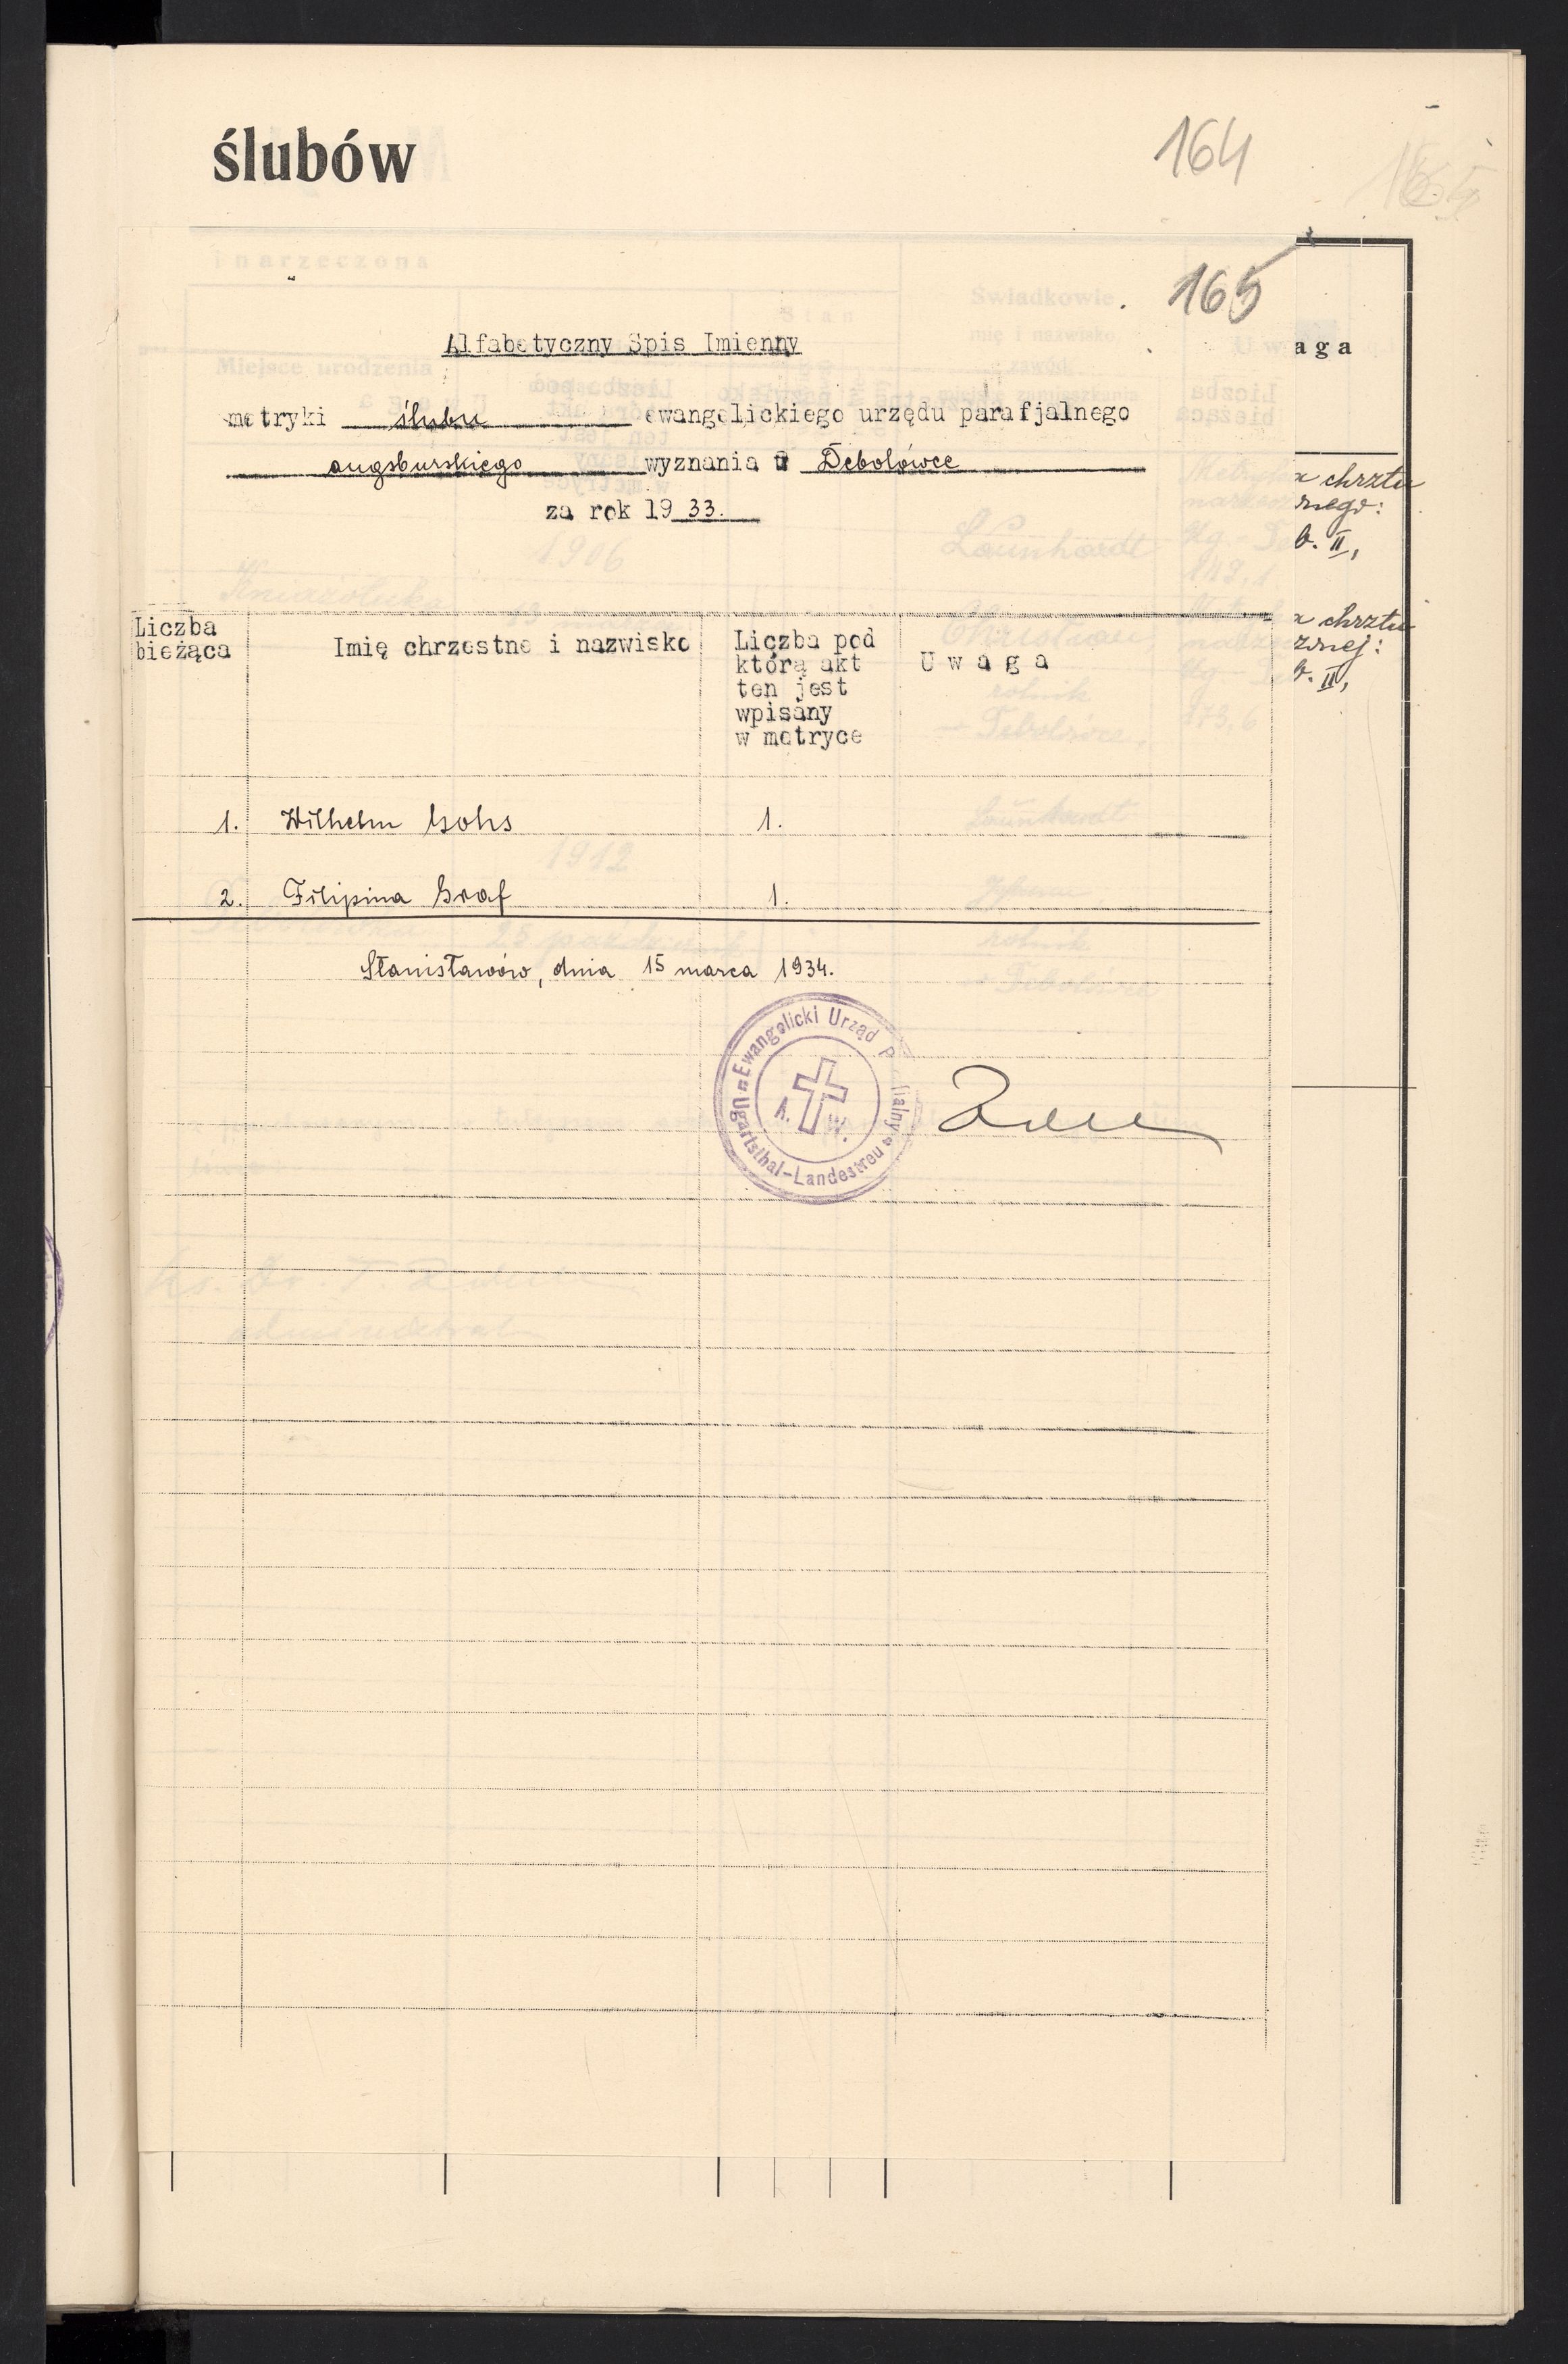 ślubów
164
165
Alfabetyczny Spis Imienny
metryki ślubu ewangelickiego urzędu parafjalnego
augsburskiego wyznania w Debolówce
za rok 1933.
aga
a chrztu
nego:
b. II,
a chrztu
znej:
b. II,
Liczba bieżąca
Imię chrzestne i nazwisko
Liczba pod którą akt ten jest wpisany w metryce
Uwaga
1. Wilhelm Gohs 1.
2. Filipina Graf 1.
Stanisławów, dnia 15 marca 1934.
Ewangelicki Urząd Parafialny
A. W.
Ugartsthal-Landestreu